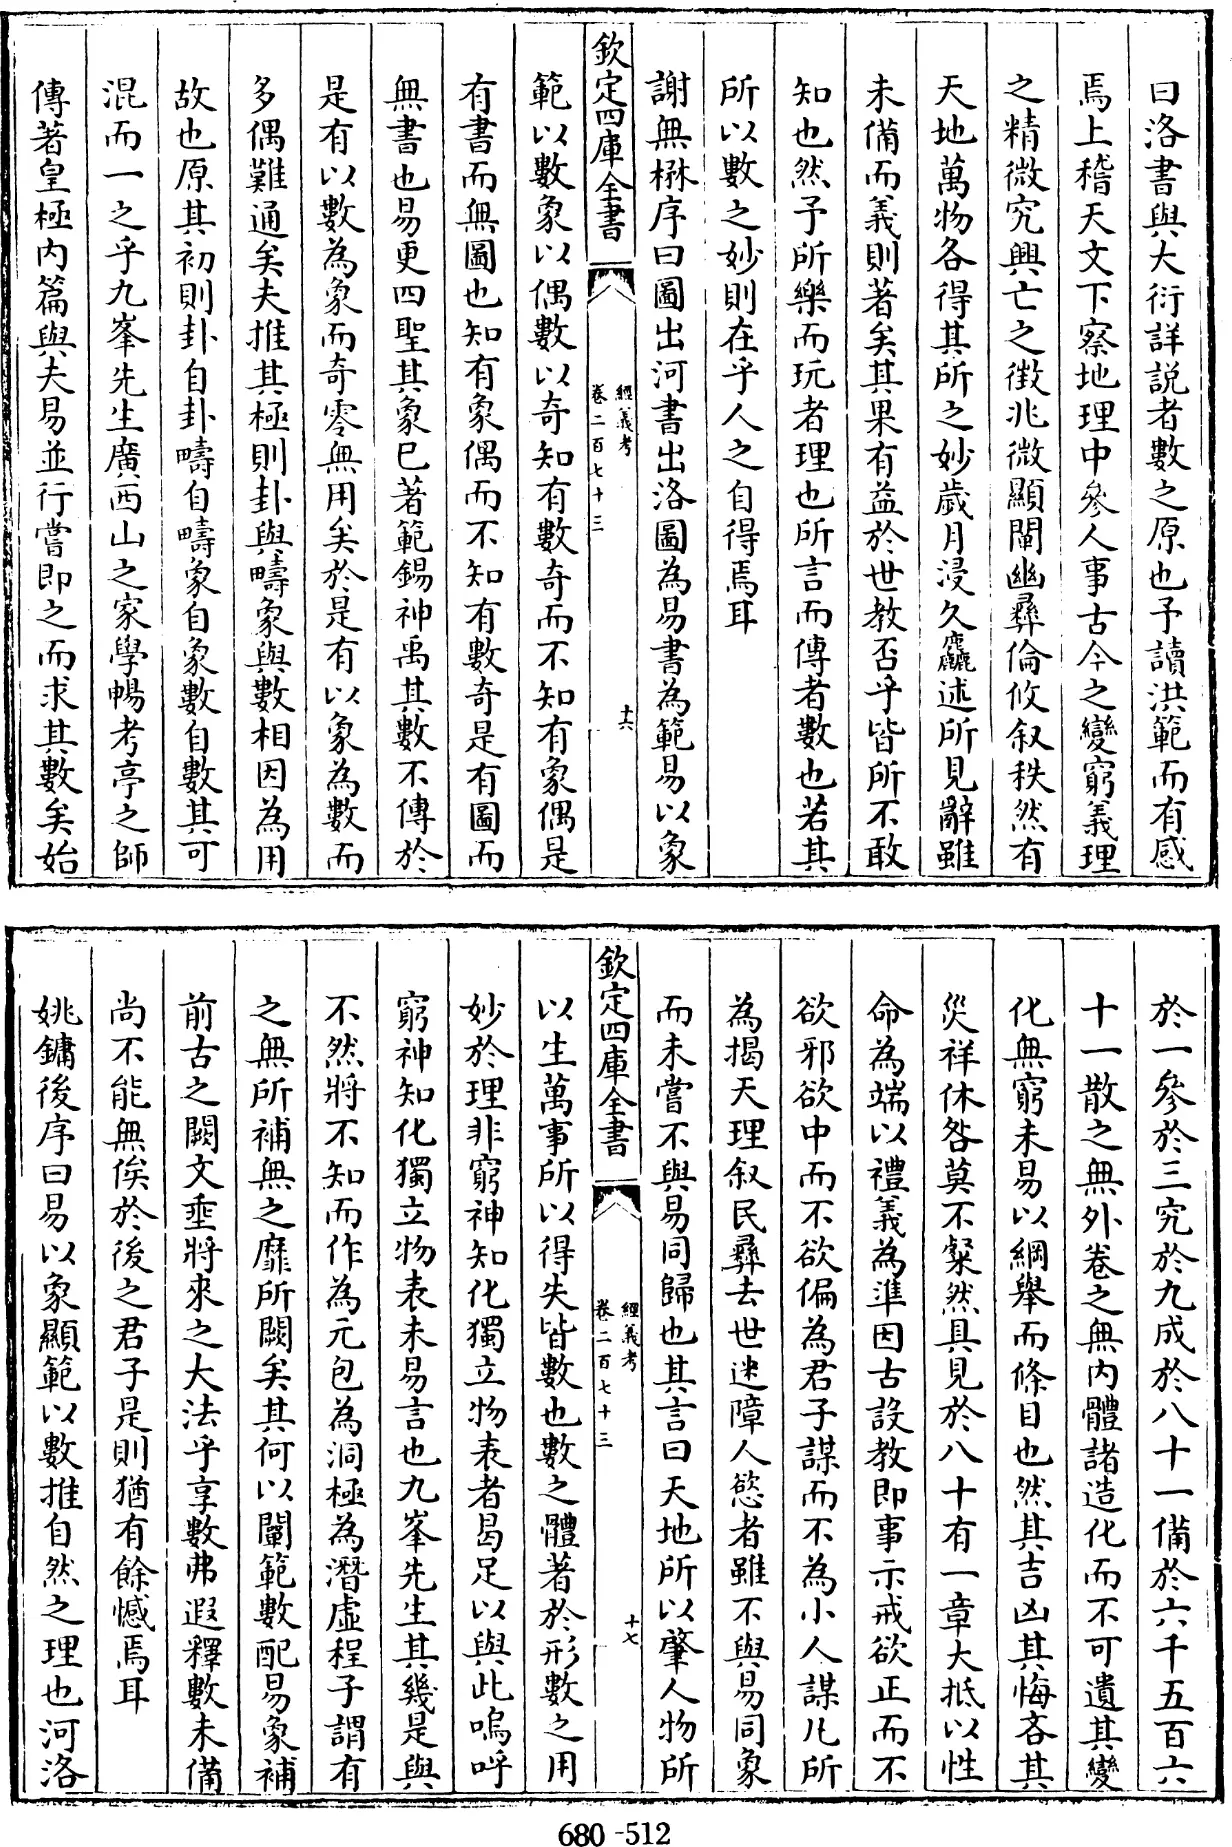 曰洛書與大衍詳説者數之原也予讀洪範而有感
焉上稽天文下察地理中參人事古今之變窮義理
之精微究興亡之徴兆微顯闡幽彞倫攸叙秩然有
天地萬物各得其所之妙歲月浸久麤述所見辭雖
未備而義則著矣其果有益於世教否乎皆所不敢
知也然予所樂而玩者理也所言而傳者數也若其
所以數之妙則在乎人之自得焉耳
謝無楙序曰圖出河書出洛圖為易書為範易以象
欽定四庫全書
經義考
卷二百七十三
十六
範以數象以偶數以奇知有數奇而不知有象偶是
有書而無圖也知有象偶而不知有數奇是有圖而
無書也易更四聖其象已著範錫神禹其數不傳於
是有以數為象而奇零無用矣於是有以象為數而
多偶難通矣夫推其極則卦與疇象與數相因為用
故也原其初則卦自卦疇自疇象自象數自數其可
混而一之乎九峯先生廣西山之家學暢考亭之師
傳著皇極內篇與夫易並行嘗即之而求其數矣始
於一參於三究於九成於八十一備於六千五百六
十一散之無外卷之無內體諸造化而不可遺其變
化無窮未易以綱舉而條目也然其吉凶其悔吝其
災祥休咎莫不粲然具見於八十有一章大抵以性
命為端以禮義為準因古設教即事示戒欲正而不
欲邪欲中而不欲偏為君子謀而不為小人謀凡所
為揭天理叙民彞去世迷障人慾者雖不與易同象
而未嘗不與易同歸也其言曰天地所以肇人物所
欽定四庫全書
經義考
卷二百七十三
十七
以生萬事所以得失皆數也數之體著於形數之用
妙於理非窮神知化獨立物表者曷足以與此嗚呼
窮神知化獨立物表未易言也九峯先生其幾是與
不然將不知而作為元包為洞極為潛虛程子謂有
之無所補無之靡所闕矣其何以闡範數配易象補
前古之闕文垂將來之大法乎享數弗遐釋數未備
尚不能無俟於後之君子是則猶有餘憾焉耳
姚鏞後序曰易以象顯範以數推自然之理也河洛
680-512